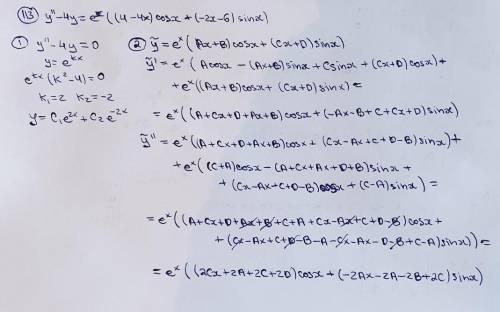 (113) y''-4y=e^x((4-4x)cosx+(-2x-6)sinx)
① y''-4y=0
y=e^{kx}
e^{kx}(k²-4)=0
k₁=2 k₂=-2
y=C₁e^{2x}+C₂e^{-2x}
② ỹ=e^x(Ax+B)cosx+(Cx+D)sinx)
ỹ'=e^x(Acosx-(Ax+B)sinx+Csinx+(Cx+D)cosx)+
+e^x((Ax+B)cosx+(Cx+D)sinx)=
=e^x((A+Cx+D+Ax+B)cosx+(-Ax-B+C+Cx+D)sinx)
ỹ''=e^x((A+Cx+D+Ax+B)cosx+(Cx-Ax+C+D-B)sinx)+
+e^x((C+A)cosx-(A+Cx+Ax+D+B)sinx+
+(Cx-Ax+C+D-B)cosx+(C-A)sinx)=
=e^x((A+Cx+D+Ax+B+C+A+Cx-Ax+C+D-B)cosx+
+(Cx-Ax+C+D-B-A-Cx-Ax-D-B+C-A)sinx))=
=e^x((2Cx+2A+2C+2D)cosx+(-2Ax-2A-2B+2C)sinx)